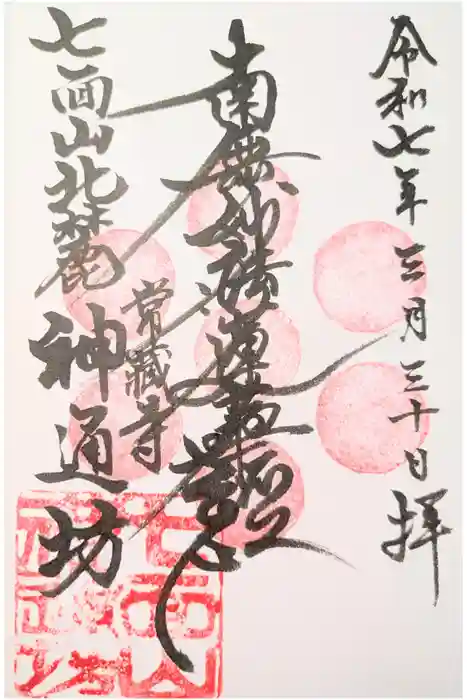 令和七年三月三十日拝
南無妙法蓮華経
常蔵寺
七面山北麓
神通坊